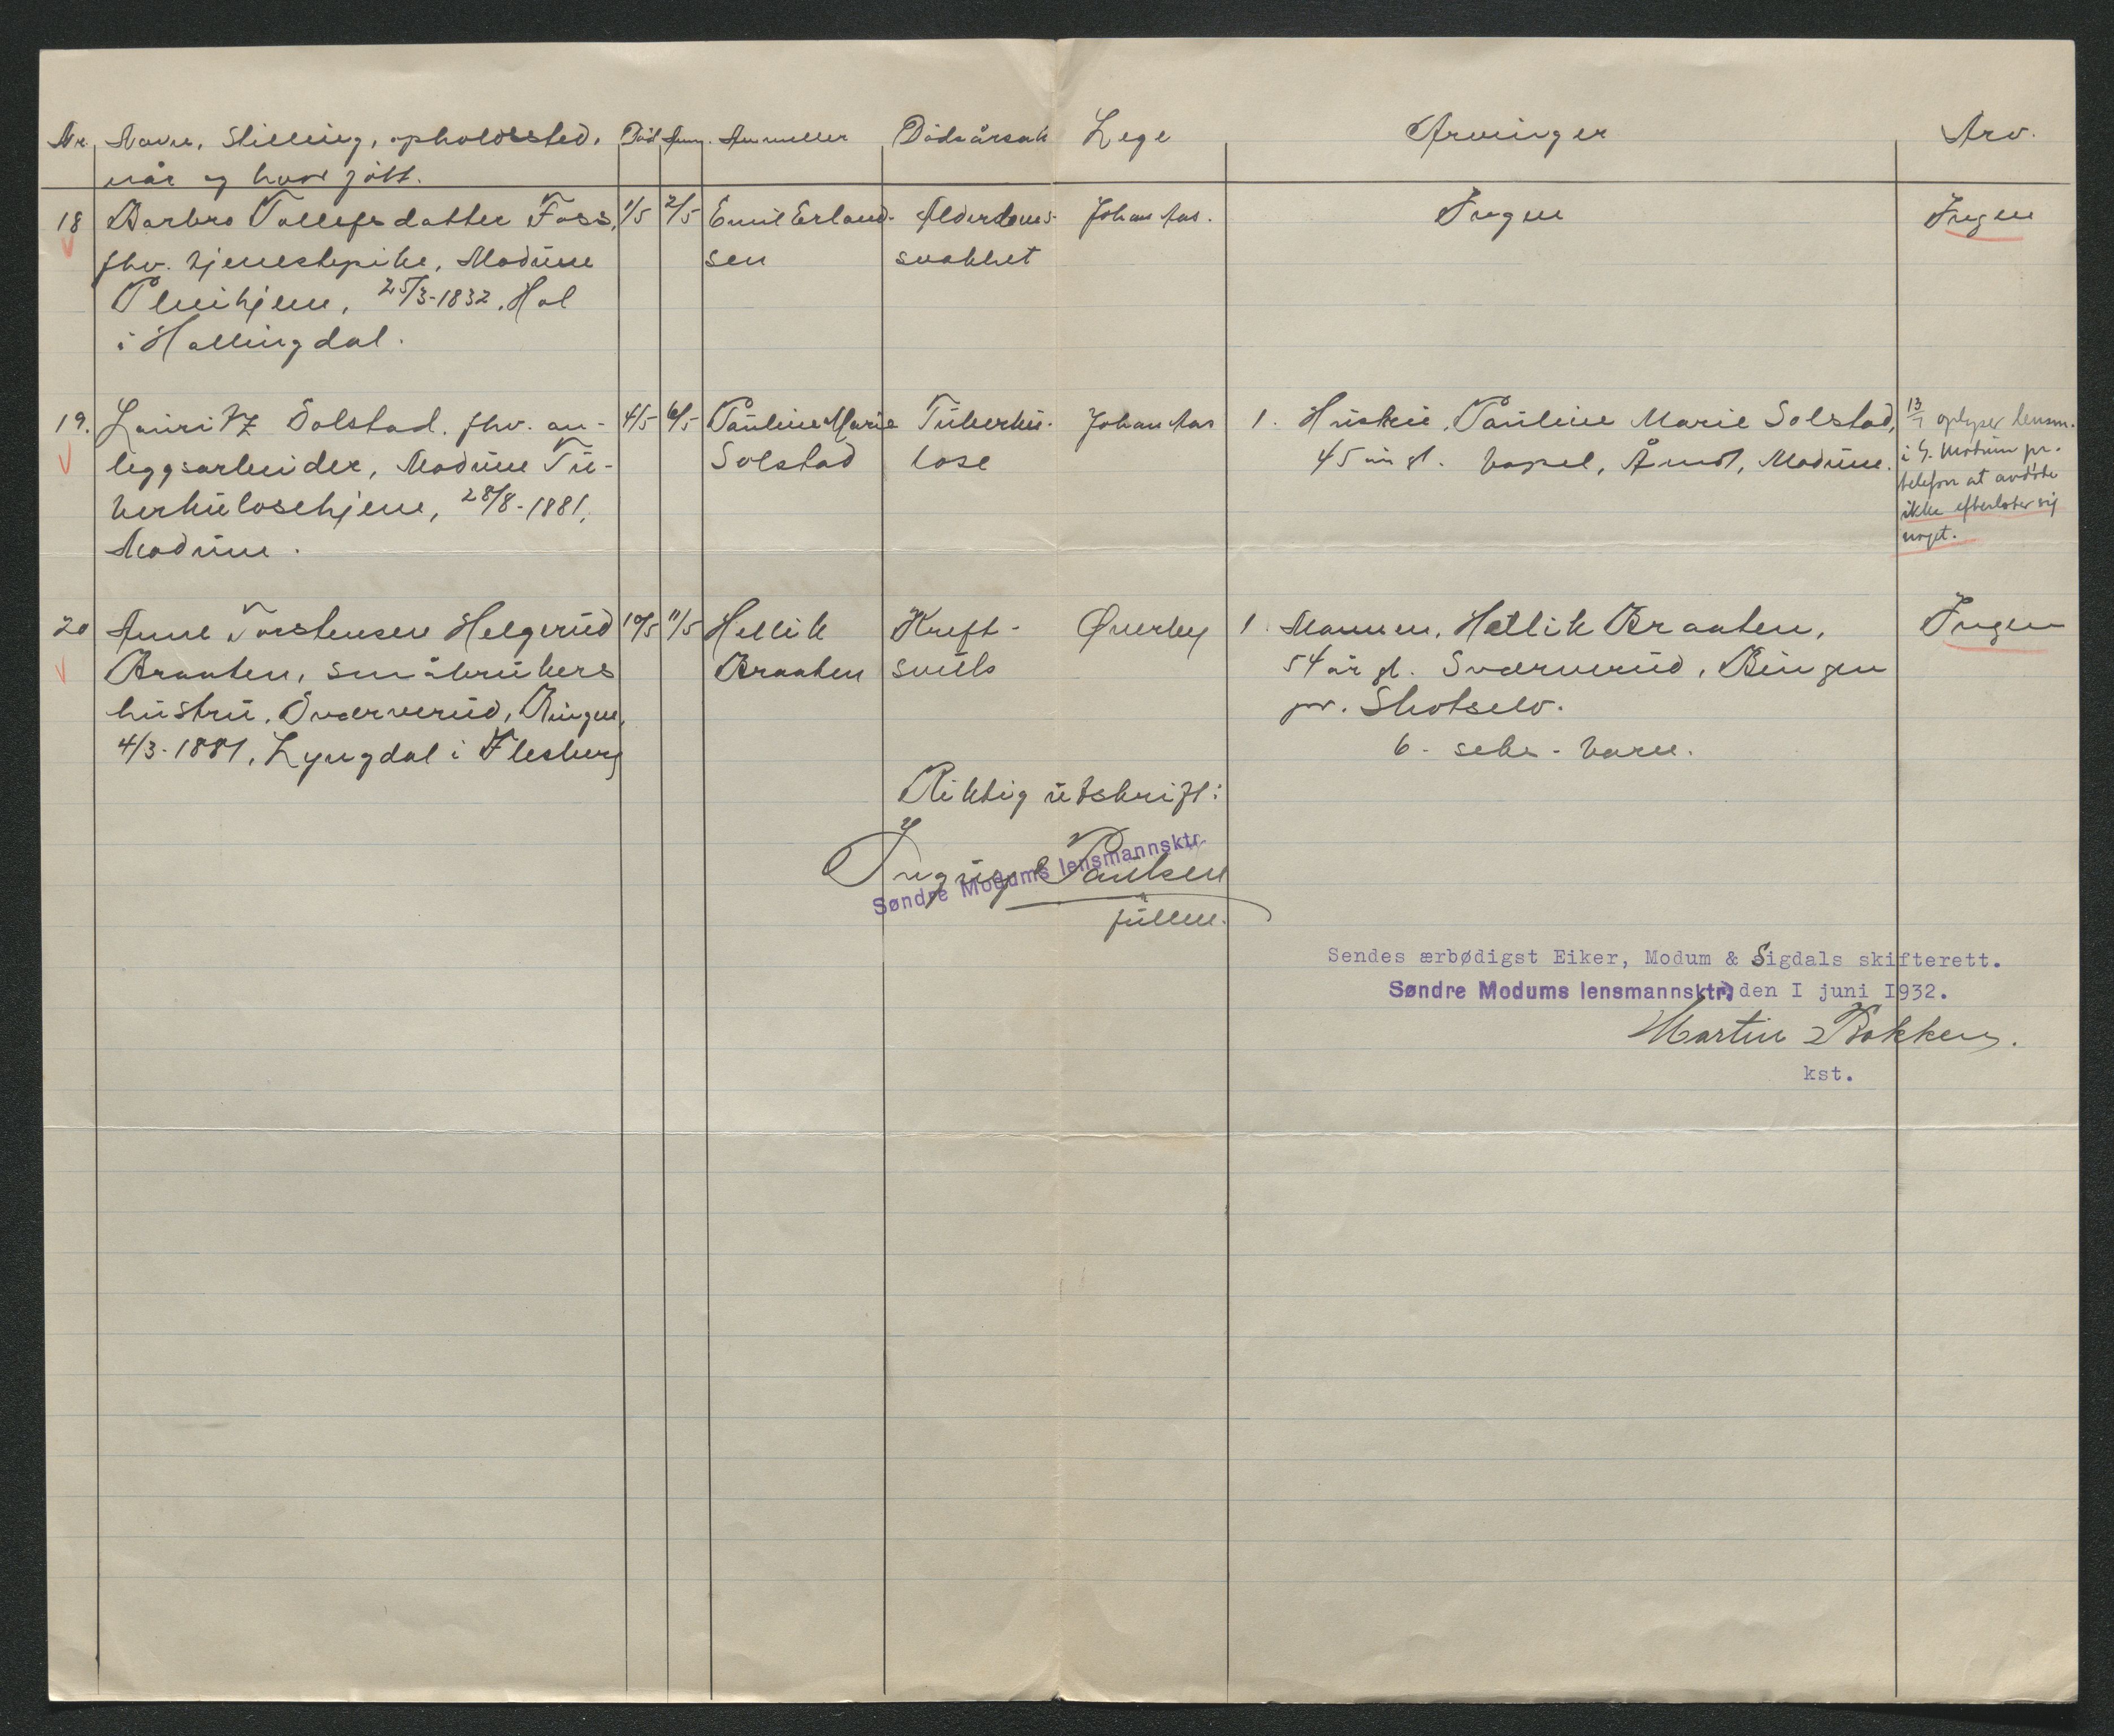 Nr. Navn, Stilling, opholdssted, Död Anm. Anmelder Dödsårsak Lege Arvinger Arv.
når og hvor født.
18 Barbro Tollefsdatter Foss, 1/5 2/5 Emil Erland- Alderdoms- Johan Aas. Ingen Ingen
fhv. tjenestepike, Modum sen svakhet
Pleiehjem, 25/3-1832, Hol
i Hallingdal.
19. Lauritz Solstad. fhv. an- 4/5 6/5 Pauline Marie Tuberku- Johan Aas 1. Hustru, Pauline Marie Solstad, 13/7 oplyser lensm.
leggsarbeider, Modum Tu- Solstad lose 45 år gl. Åmot, Modum. i S. Modum pr.
berkulosehjem, 28/8-1881, telefon at avdöde
Modum. ikke efterlater sig
noget.
20 Anne Torstensen Helgerud 10/5 11/5 Hellik Kreft- Øverby 1. Mannen, Hellik Braaten, Ingen
Braaten, småbrukers Braaten svuls 54 år gl. Sværverud, Bingen
hustru, Sværverud, Bingen, pr. Skotselv.
4/3-1881, Lyngdal i Flesberg 6 - seks - barn.
Riktig utskrift:
Søndre Modums lensmannsktr.
Paulsen
fullm.
Sendes ærbødigst Eiker, Modum & Sigdals skifterett.
Søndre Modums lensmannsktr, den I juni I932.
Martin Bakken.
kst.